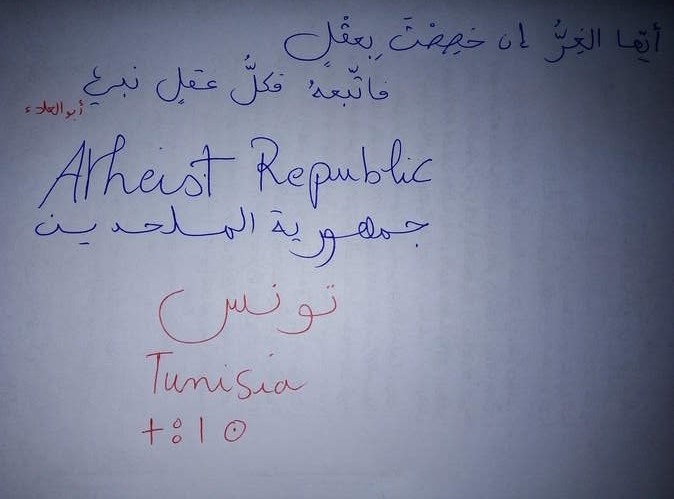 أيّها الغِرُّ إن خصِصْتَ بِعقْلٍ
فاتّبعهُ فكلُّ عقلٍ نبيء
أبو العلاء
Atheist Republic
جمهورية الملحدين
تونس
Tunisia
ⵜⵓⵏⵙ